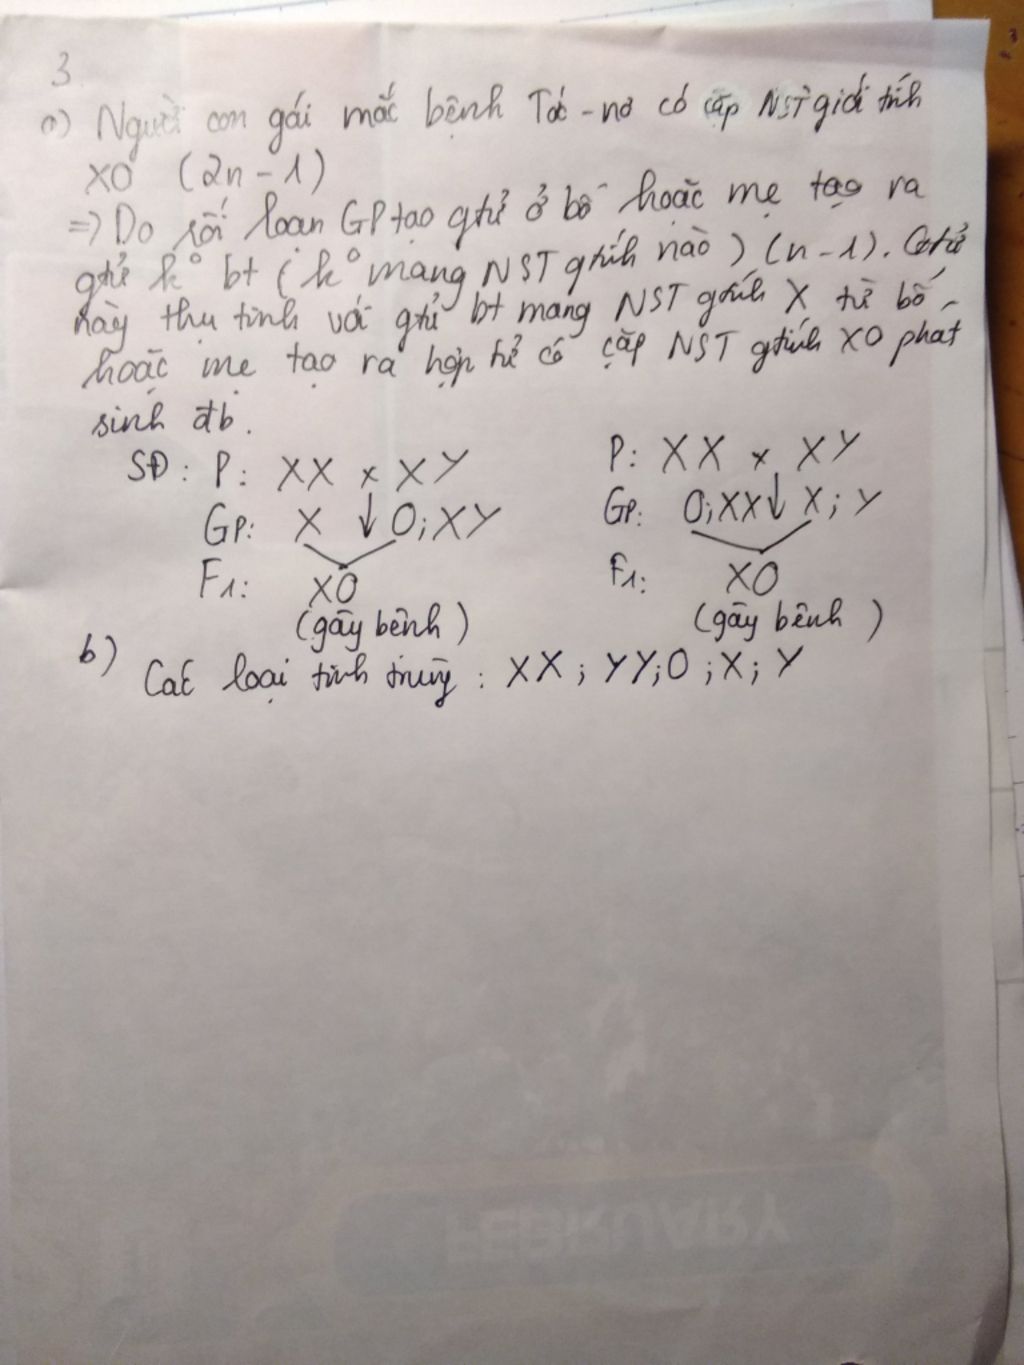 3
a) Người con gái mắc bệnh Tớc-nơ có cặp NST giới tính
XO (2n-1)
=> Do rối loạn GP tạo gtử ở bố hoặc mẹ tạo ra
gtử k° bt (k° mang NST gtính nào) (n-1). Gtử
này thụ tinh với gtử bt mang NST gtính X từ bố
hoặc mẹ tạo ra hợp tử có cặp NST gtính XO phát
sinh đb.
SĐ: P: XX x XY
GP: X ↓ O; XY
F1: XO
(gây bệnh)
P: XX x XY
GP: O; XX ↓ X; Y
F1: XO
(gây bệnh)
b) Các loại tinh trùng: XX; YY; O; X; Y
FEBRUARY